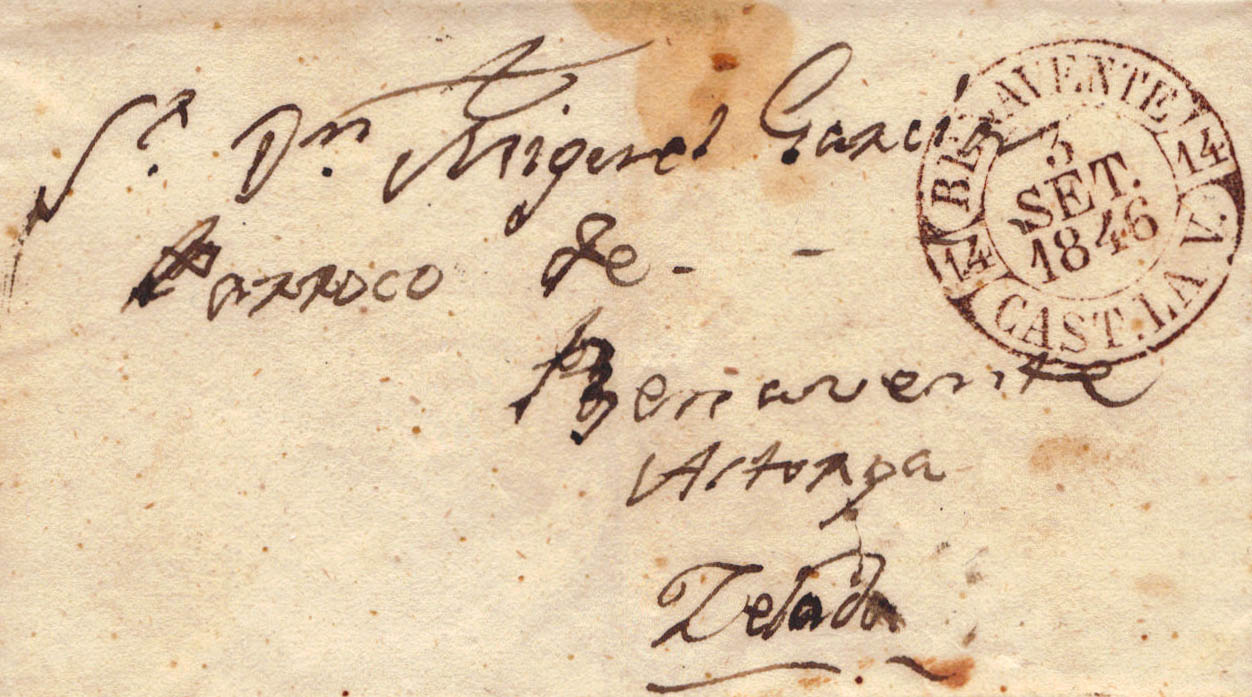 Sr. Dn. Miguel Garcia
Parroco de - -
Benavente
Astorga
BENAVENTE
14
3
SET.
1846
14
CAST. LA V.